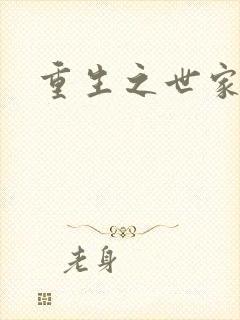 重生之世家
老身